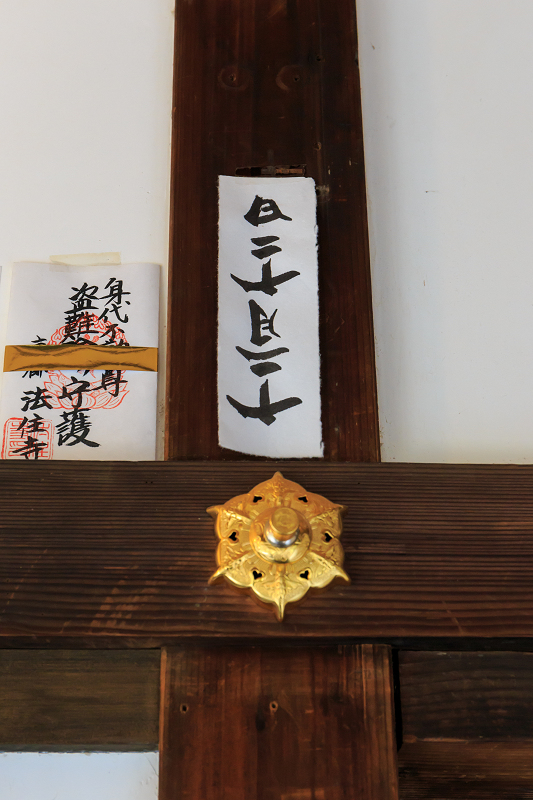 十二月十二日
身代不動尊
盗難 守護
京都 法住寺